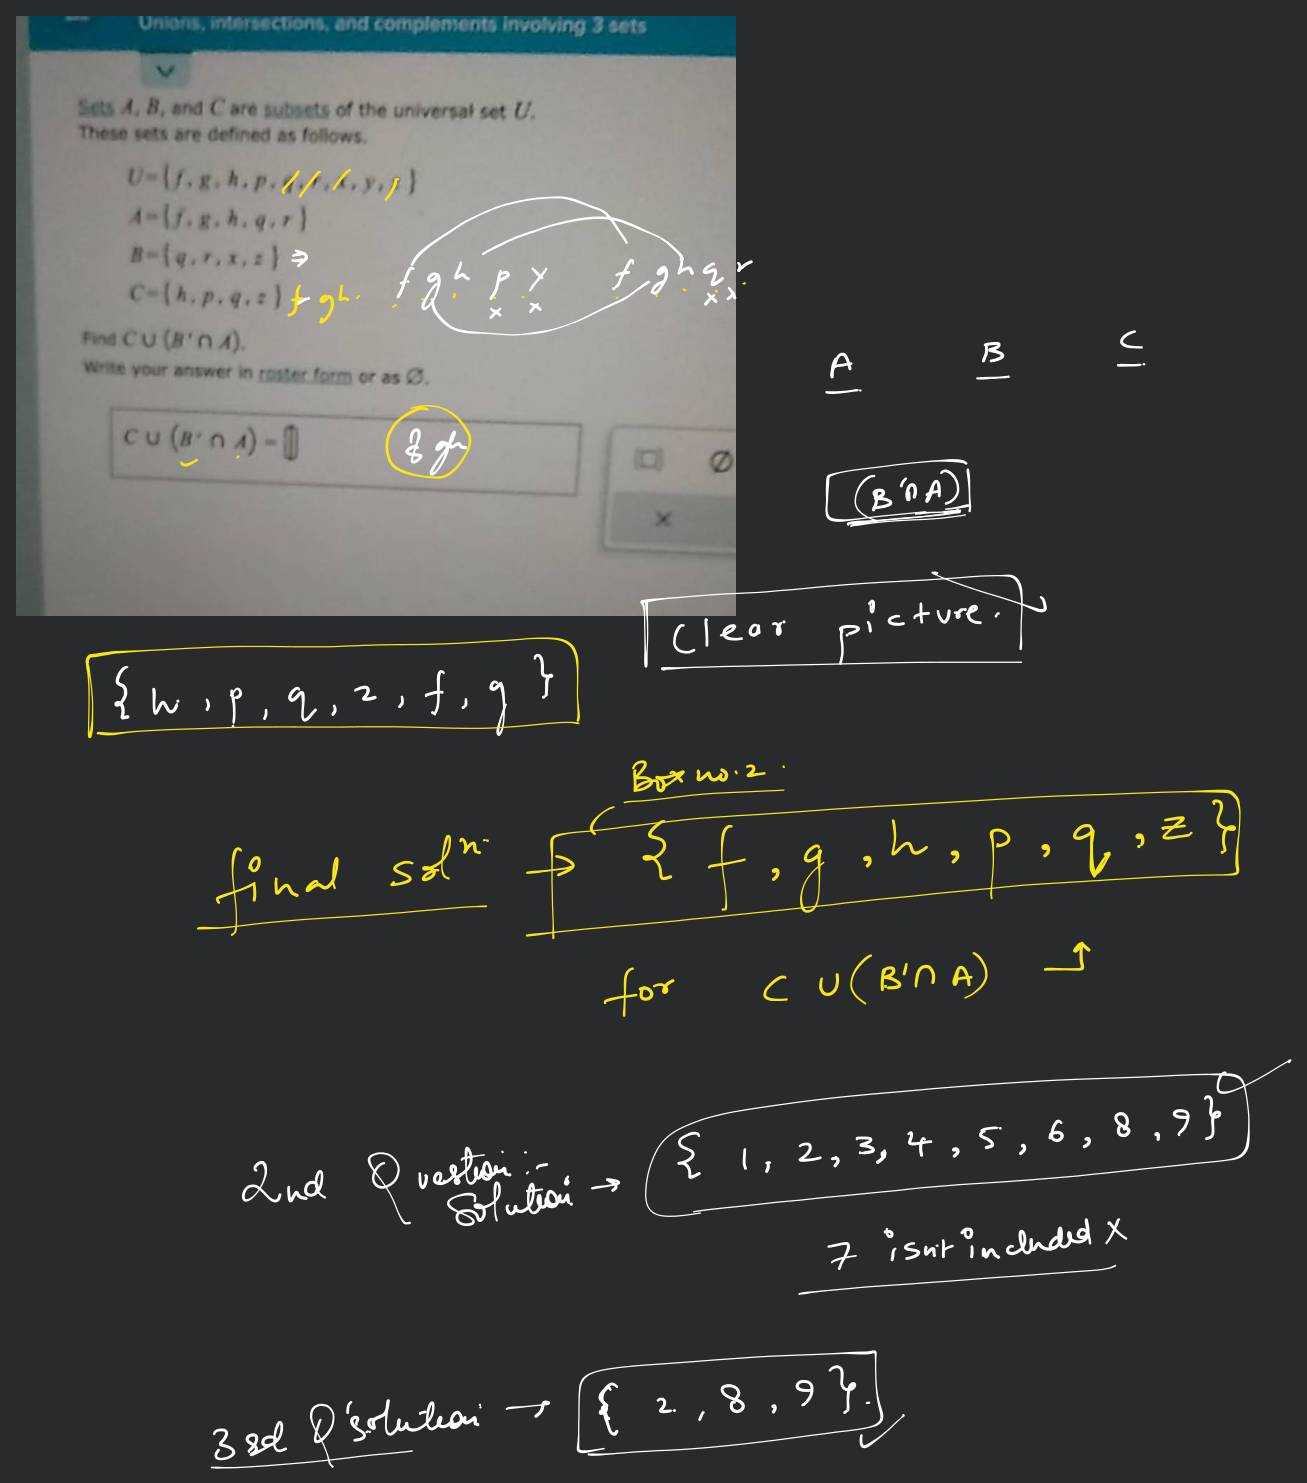 Unions, intersections, and complements involving 3 sets
Sets A, B, and C are subsets of the universal set U.
These sets are defined as follows.
U={f, g, h, p, q, r, x, y, z}
A={f, g, h, q, r}
B={q, r, x, z} ⇒
C={h, p, q, z} f gh.
f g h p y f g h q r
x x x x
Find C∪(B'∩A).
Write your answer in roster form or as Ø.
A B C
C∪(B'∩A)=
f gh
Ø
×
(B'∩A)
Clear picture.
{h, p, q, z, f, g}
Box no.2.
final solⁿ. → {f, g, h, p, q, z}
for C∪(B'∩A)
2nd Question:-
Solution → {1, 2, 3, 4, 5, 6, 8, 9}
7 isn't included X
3rd Q'solution → {2, 8, 9}.